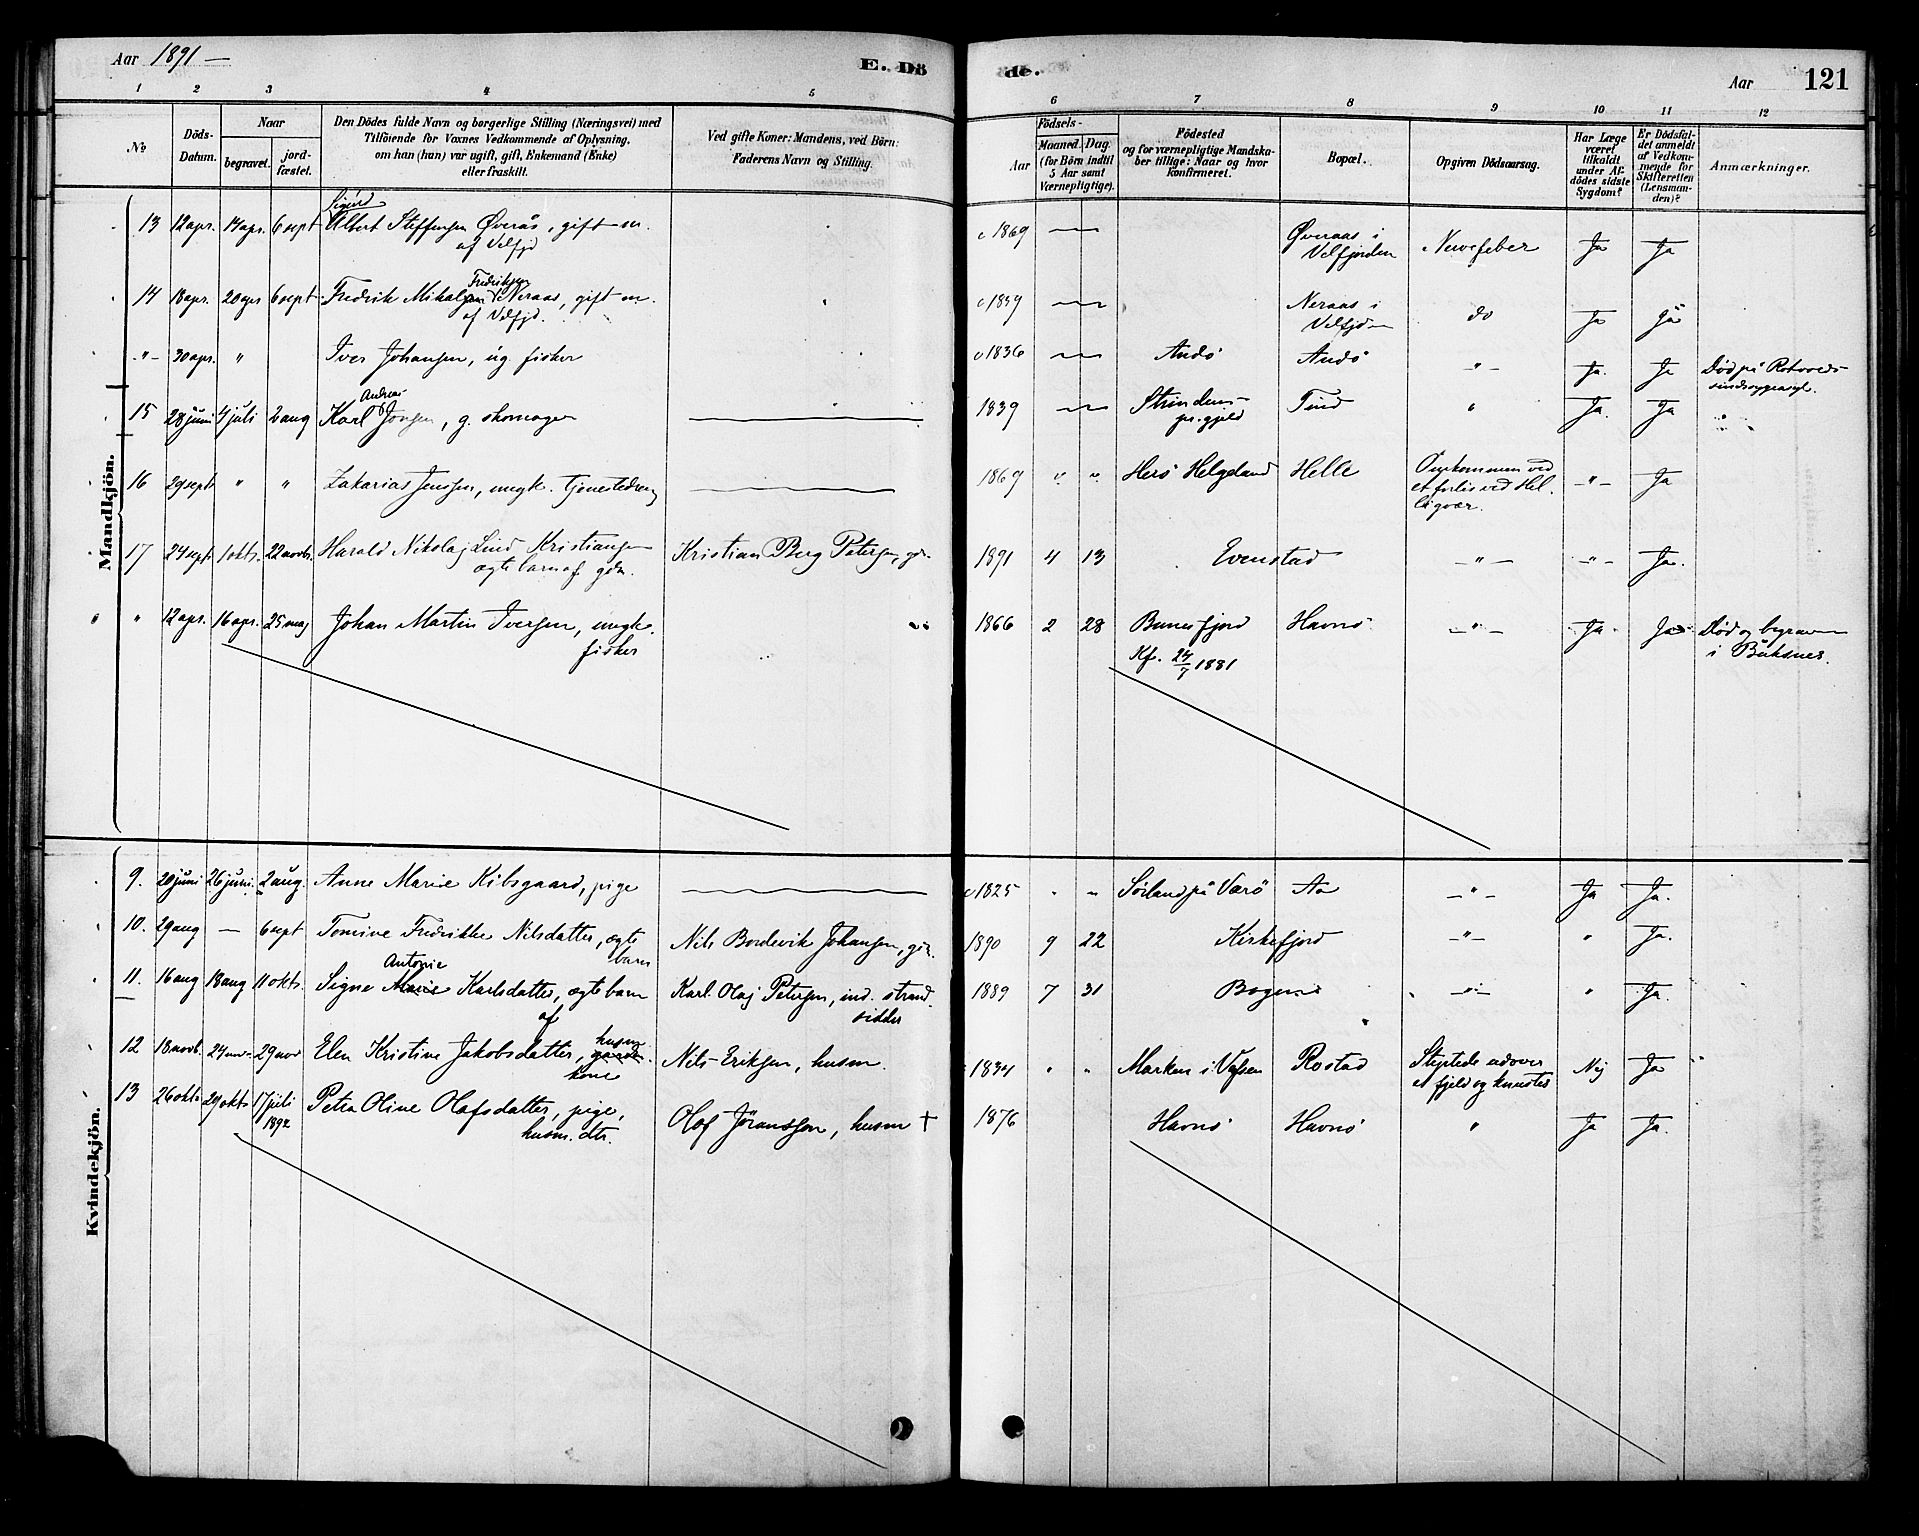 Aar 1891 —
E. Dö
de.
Aar
121
1 2 3 4 5
6 7 8 9 10 11 12
No
Döds-
Datum.
Naar
begravet.
jord-
fæstet.
Den Dödes fulde Navn og borgerlige Stilling (Næringsvei) med
Tilföiende for Voxnes Vedkommende af Oplysning,
om han (hun) var ugift, gift, Enkemand (Enke)
eller fraskilt.
Ved gifte Koner: Mandens, ved Börn:
Faderens Navn og Stilling.
Födsels-
Aar
Maaned. Dag.
(for Börn indtil
5 Aar samt
Værnepligtige).
Födested
og for værnepligtige Mandska-
ber tillige: Naar og hvor
konfirmeret.
Bopæl.
Opgiven Dödsaarsag.
Har Læge
været
tilkaldt
under Af-
dödes sidste
Sygdom?
Er Dödsfal-
det anmeldt
af Vedkom-
mende for
Skifteretten
(Lensman-
den)?
Anmærkninger.
Mandkjön.
Sigurd
13 12 apr. 17 apr. 6 sept Albert Steffensen Øverås, gift m. c 1869 Øveraas i Nervefeber Ja Ja
af Velfjd Velfjorden
Fredriksen
14 18 apr. 20 apr 6 sept Fredrik Mikalsen Neraas, gift m. c 1859 Neraas i do Ja Ja
af Velfjd. Velfjd
-"- 30 apr. " Iver Johansen, ug. fisker c 1836 Andö Andö -"- Ja. Ja Död på Rotvolds
sindssygeasyl.
Andreas
15 28 juni 4 juli 2 aug Karl Jonsen, g. skomager 1839 Strindens Tind " Ja. Ja
pr.gjeld
16 29 sept " " Zakarias Jenssen, ungk. tjenestedreng 1869 " " Herö Helgeland Helle Omkommen ved -"- Ja
et forlis ved Hel-
ligvær.
17 24 sept 1 okt. 22 novbr. Harald Nikolaj Lind Kristiansen Kristian Berg Petersen, gdr. 1891 4 13 Evenstad -"- -"- Ja.
ægte barn af gdr.
" " 12 apr. 16 apr. 25 maj Johan Martin Iversen, ungk. 1866 2 28 Bunesfjord Havnö -"- Ja Ja Död og begraven
fisker Kf. 24/7 1881 i Buksnes.
Kvindekjön.
9. 20 juni 26 juni 2 aug. Anne Marie Kibsgaard, pige c 1825 " " Sörland på Værö Aa -"- Ja Ja.
10. 29 aug — 6 sept Tomine Fredrikke Nilsdatter, ægte Nils Bordevik Johansen, gdr. 1890 9 22 Kirkefjord -"- " Ja.
barn
Antonie
11. 16 aug 18 aug 11 okt. Signe Marie Karlsdatter, ægte barn Karl Olaj Petersen, ind. strand- 1889 7 31 -"- " Ja.
af sidder
husm
12 18 novb. 24 nov. 29 nov Elen Kristine Jakobsdatter, Nils Eriksen, husm. 1834 " " Marken i Vefsen Rostad Styrtede udover Nej Ja
kone et fjeld og knustes
13 26 okt. 29 okt. 17 juli Petra Oline Olafsdatter, pige, Olaf Jöranssen, husm † 1876 Havnö Havnö " Ja Ja.
1892 husm. dtr.